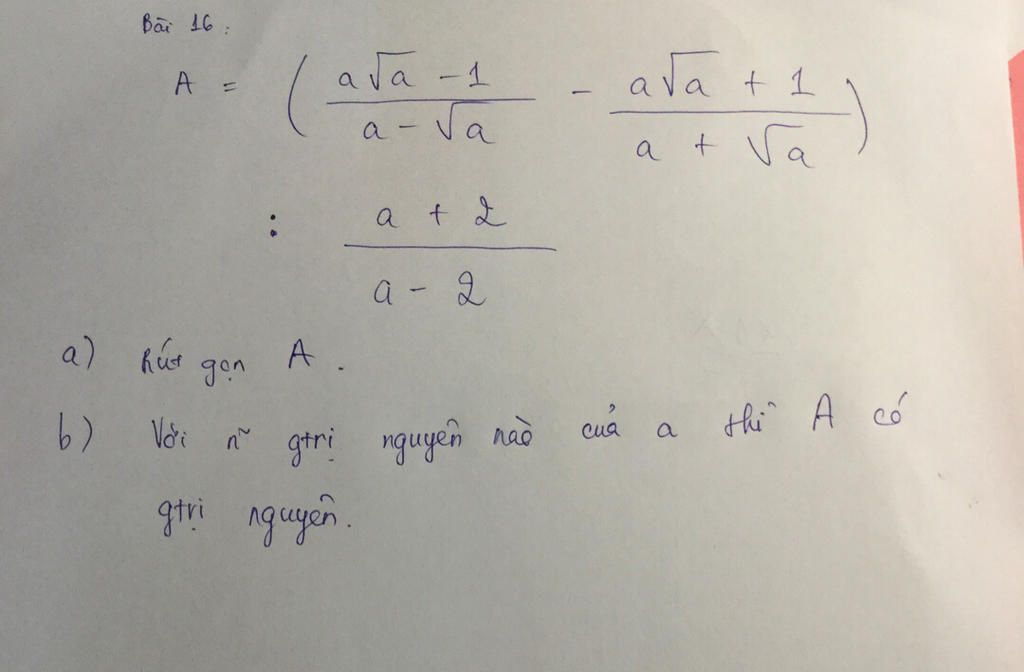 Bài 16 :
A = ( a√a - 1 / a - √a - a√a + 1 / a + √a )
: a + 2 / a - 2
a) Rút gọn A .
b) Với n~ gtrị nguyên nào của a thì A có
gtrị nguyên.